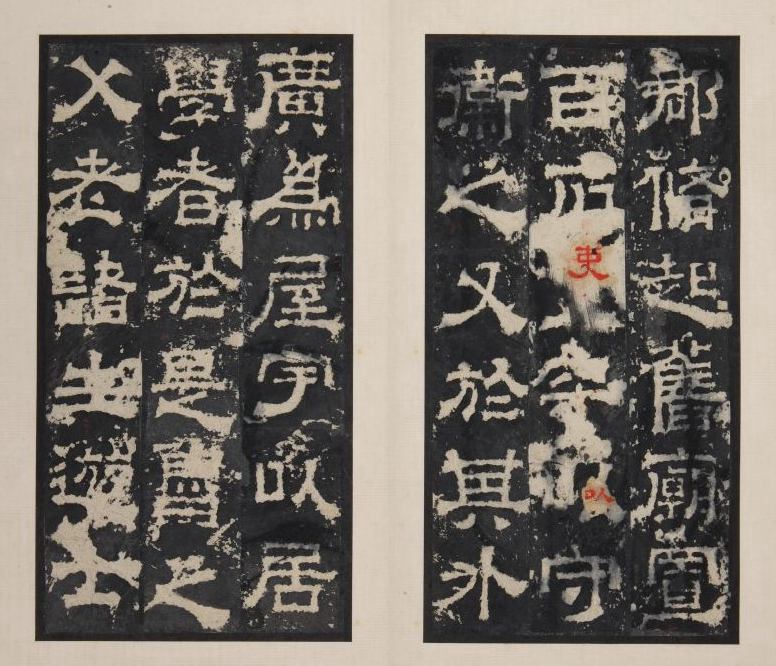 郡脩起舊廟置
百石吏卒㕥守
衛之又於其外
廣為屋宇㕥居
學者於是魯之
父老諸生遊士